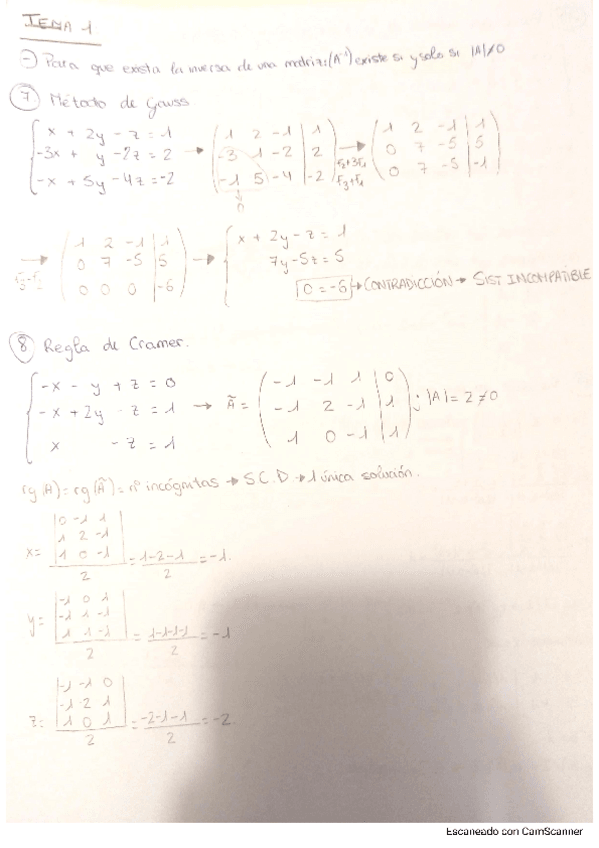 TEMA 1
-) Para que exista la inversa de una matriz: (A⁻¹) existe si y solo si |A|≠0
7) Método de Gauss
{ x + 2y - z = 1
-3x + y - 2z = 2
-x + 5y - 4z = -2
→ ( 1 2 -1 | 1
-3 1 -2 | 2
-1 5 -4 | -2 )
0
F2+3F1
F3+F1
→ ( 1 2 -1 | 1
0 7 -5 | 5
0 7 -5 | -1 )
F3-F2
→ ( 1 2 -1 | 1
0 7 -5 | 5
0 0 0 | -6 )
→ { x + 2y - z = 1
7y - 5z = 5
0 = -6 → CONTRADICCIÓN → SIST INCOMPATIBLE
8) Regla de Cramer.
{ -x - y + z = 0
-x + 2y - z = 1
x - z = 1
→ Ã = ( -1 -1 1 | 0
-1 2 -1 | 1
1 0 -1 | 1 ) ; |A| = 2 ≠ 0
rg(A) = rg(Ã) = nº incógnitas → S.C.D → 1 única solución.
x = | 0 -1 1
1 2 -1
1 0 -1 |
/ 2 = 1-2-1 / 2 = -1.
y = | -1 0 1
-1 1 -1
1 1 -1 |
/ 2 = 1-1-1-1 / 2 = -1
z = | -1 -1 0
-1 2 1
1 0 1 |
/ 2 = -2-1-1 / 2 = -2
Escaneado con CamScanner